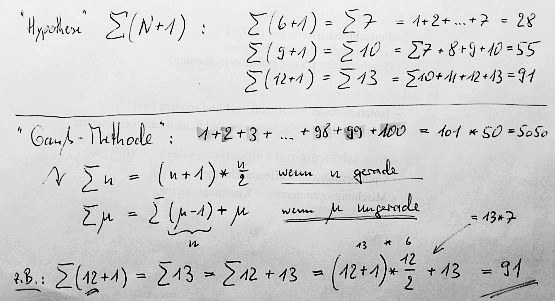 "Hypothese" ∑(N+1) : ∑(6+1) = ∑7 = 1+2+...+7 = 28
∑(9+1) = ∑10 = ∑7+8+9+10 = 55
∑(12+1) = ∑13 = ∑10+11+12+13 = 91
"Gauß-Methode" : 1+2+3+ ... +98+99+100 = 101 * 50 = 5050
∑n = (n+1) * n/2 wenn n gerade
∑μ = ∑(μ-1) + μ wenn μ ungerade
n
= 13*7
13 * 6
z.B.: ∑(12+1) = ∑13 = ∑12 + 13 = (12+1) * 12/2 + 13 = 91